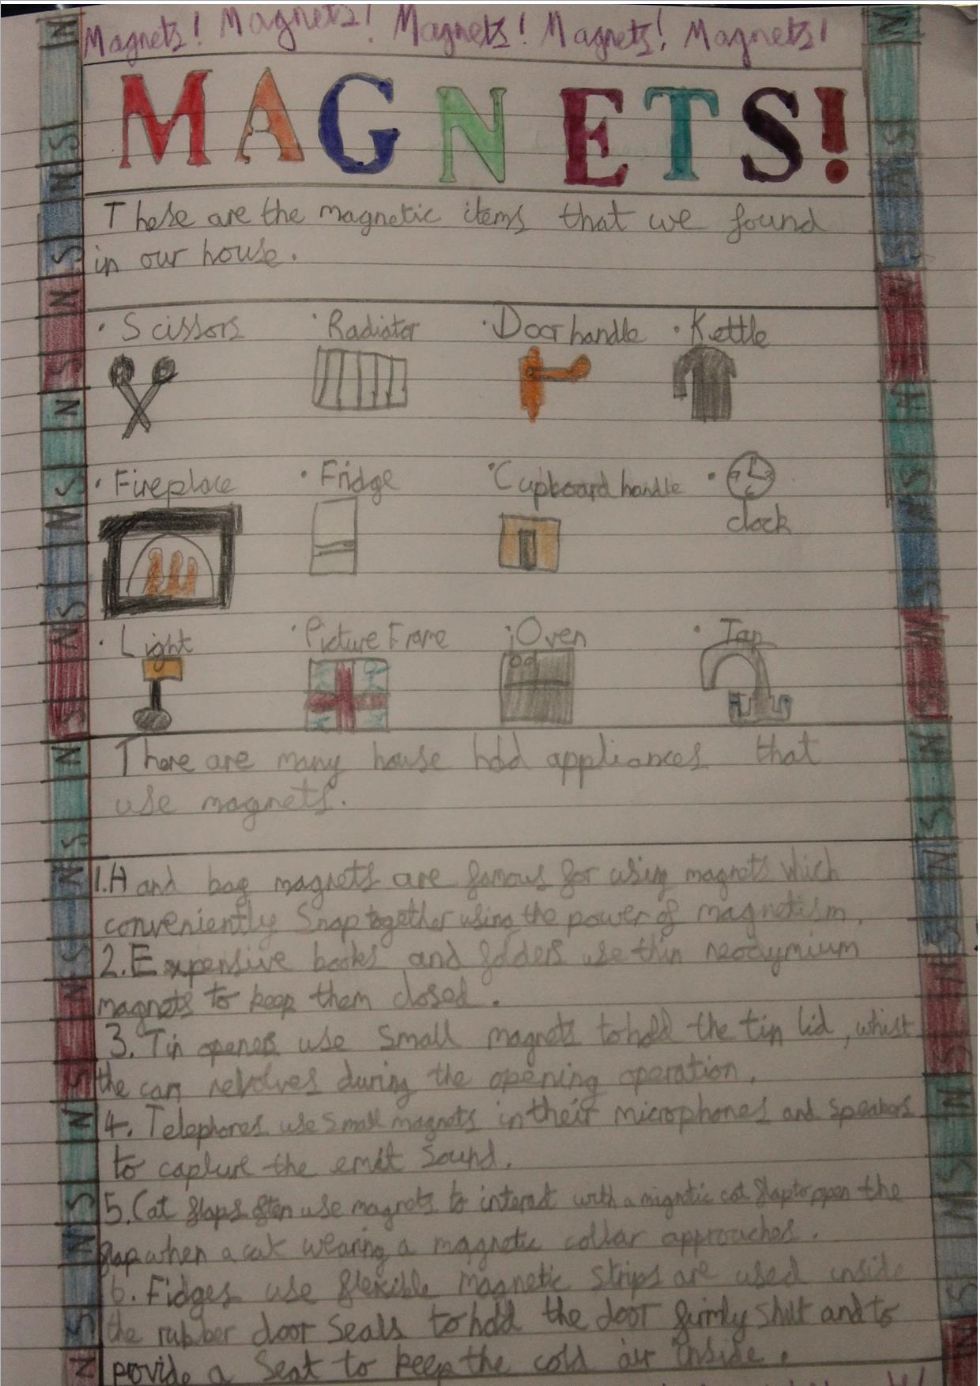 Magnets! Magnets! Magnets! Magnets! Magnets!
MAGNETS!
These are the magnetic items that we found
in our house.
• Scissors • Radiator • Door handle • Kettle
• Fireplace • Fridge • Cupboard handle •
clock
• Light • Picture Frame • Oven • Tap
There are many house hold appliances that
use magnets.
1. Hand bag magnets are famous for using magnets which
conveniently Snap together using the power of magnetism.
2. Expensive books and folders use thin neodymium
magnets to keep them closed.
3. Tin openers use small magnets to hold the tin lid, whist
the can revolves during the opening operation.
4. Telephones use small magnets in their microphones and speakers
to capture the emit sound.
5. Cat flaps often use magnets to interact with a magnetic cat flap to open the
flap when a cat wearing a magnetic collar approaches.
6. Fidges use flexible magnetic strips are used inside
the rubber door seals to hold the door firmly shut and to
provide a seat to keep the cold air inside.